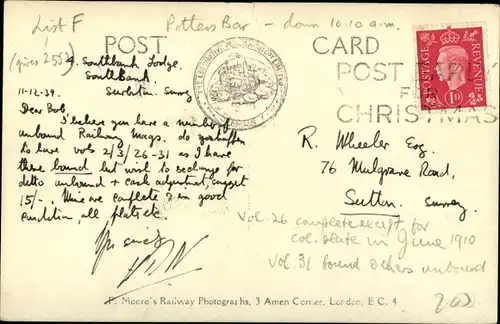 List F
Potters Bar - down 10.10 a.m.
(gives 2552)
POST CARD
4. Southbank Lodge,
Southbank
Surbiton Surrey
11-12-39
POST
CHRISTMAS
POSTAGE REVENUE
1D
Dear Bob,
I believe you have a number of
unbound Railway Mags. do you
to have vols 2/3/26-31 as I have
these bound but wish to exchange for
ditto unbound + cash adjustment, suggest
15/-. Mine are complete & in good
condition, all plates etc.
R. Wheeler Esq.
76 Mulgrave Road,
Sutton Surrey.
Vol. 26 complete except for
col. plate in June 1910
Vol. 31 bound others unbound
F. Moore's Railway Photographs, 3 Amen Corner, London, E.C. 4